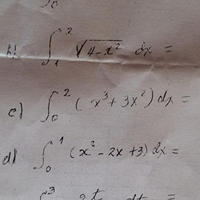 ∫₀
b) ∫₁² √4-x² dx =
c) ∫₀² (x³+3x²) dx =
d) ∫₀¹ (x²-2x+3) dx =
∫³